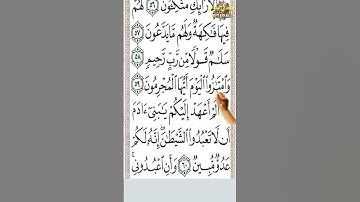 ٱلْأَرَآئِكِ مُتَّكِـُٔونَ ٥٦ لَهُمْ
فِيهَا فَـٰكِهَةٌ وَلَهُم مَّا يَدَّعُونَ ٥٧
سَلَـٰمٌ قَوْلًا مِّن رَّبٍّ رَّحِيمٍ ٥٨
وَٱمْتَـٰزُوا۟ ٱلْيَوْمَ أَيُّهَا ٱلْمُجْرِمُونَ ٥٩
أَلَمْ أَعْهَدْ إِلَيْكُمْ يَـٰبَنِىٓ ءَادَمَ
أَن لَّا تَعْبُدُوا۟ ٱلشَّيْطَـٰنَ إِنَّهُۥ لَكُمْ
عَدُوٌّ مُّبِينٌ ٦٠ وَأَنِ ٱعْبُدُونِى